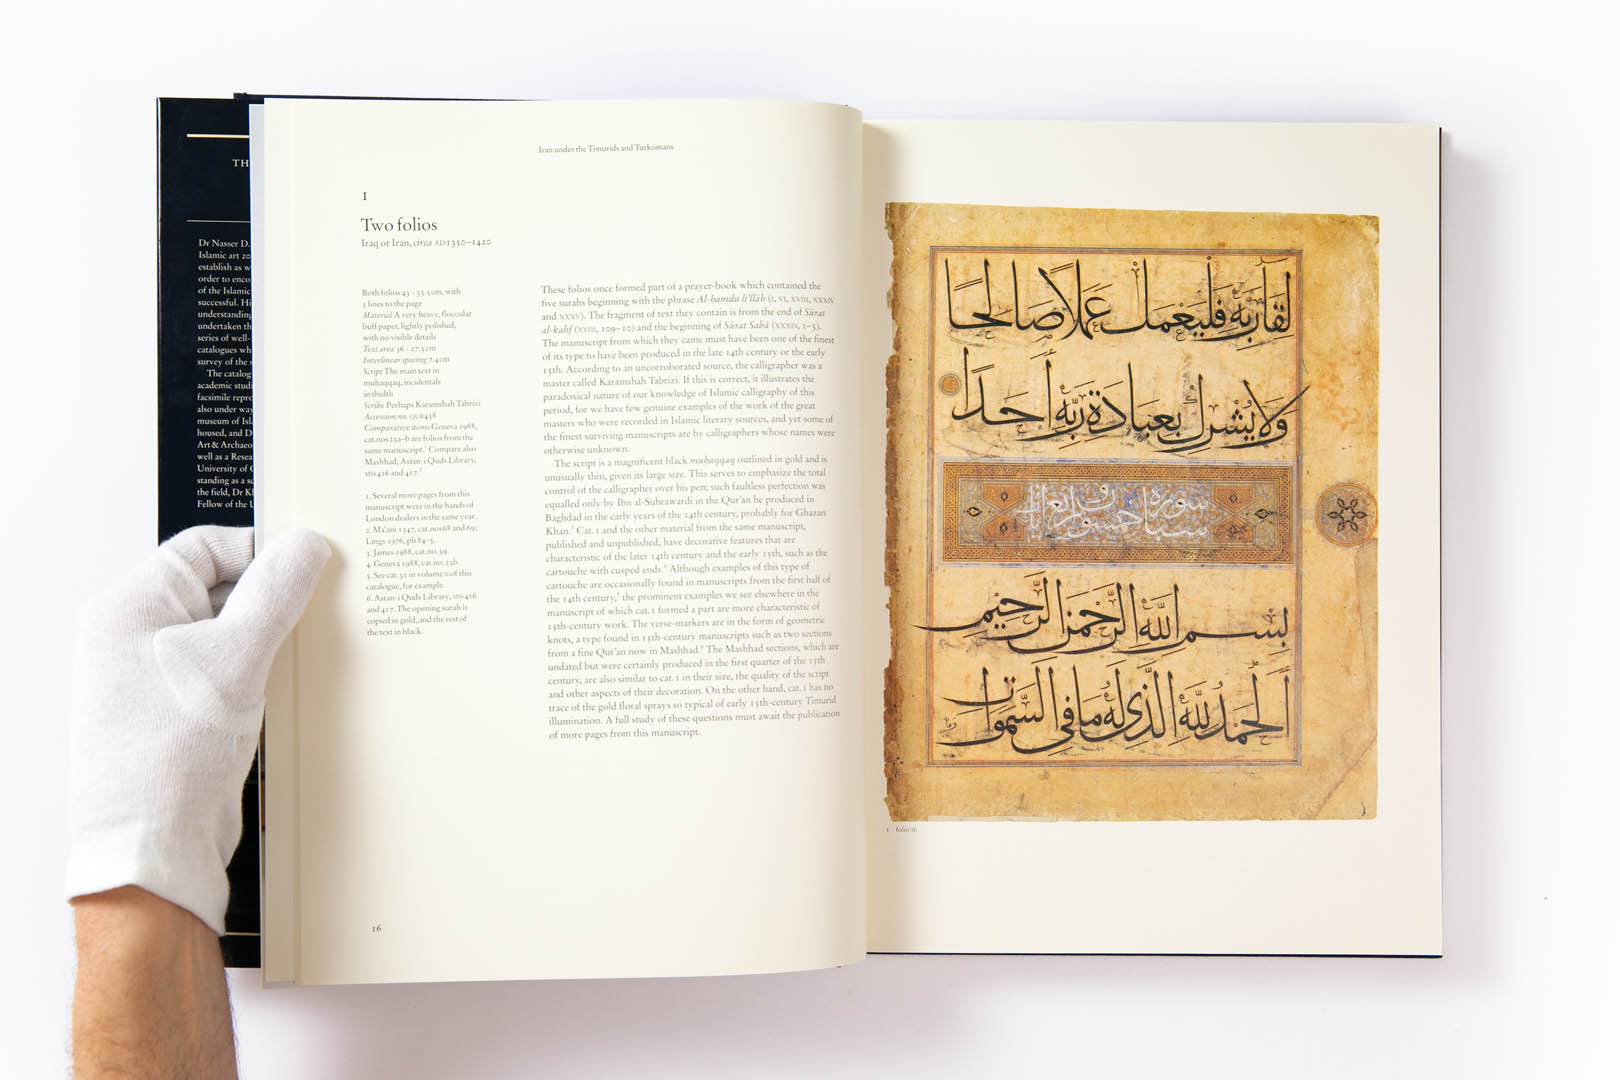 TH
Dr Nasser D.
Islamic art
establish as
order to
of the Islamic
successful.
understanding
undertaken
series of well-
catalogues
survey of the
The catalog
academic
facsimile
also under
museum of
housed, and
Art &
well as a
University of
standing as a
the field, Dr
Fellow of the
Iran under the Timurids and Turkomans
1
Two folios
Iraq or Iran, circa AD 1350–1420
Both folios 43 × 33.5 cm, with
5 lines to the page
Material A very heavy, floccular
buff paper, lightly polished,
with no visible details
Text area 36 × 27.5 cm
Interlinear spacing 7.4 cm
Script The main text in
muhaqqaq, incidentals
in thulth
Scribe Perhaps Karamshah Tabrizi
Accession no. QUR438
Comparative items Geneva 1988,
cat.nos 23a–b are folios from the
same manuscript.¹ Compare also
Mashhad, Astan-i Quds Library,
MSS 416 and 417.²
1. Several more pages from this
manuscript were in the hands of
London dealers in the same year.
2. Ma'ani 1347, cat.nos 68 and 69;
Lings 1976, pls 84–5.
3. James 1988, cat.no. 39.
4. Geneva 1988, cat.no. 23b.
5. See cat.31 in volume II of this
catalogue, for example.
6. Astan-i Quds Library, MSS 416
and 417. The opening surah is
copied in gold, and the rest of
the text in black.
These folios once formed part of a prayer-book which contained the
five surahs beginning with the phrase Al-ḥamdu li'llāh (I, VI, XVIII, XXXIV
and XXXV). The fragment of text they contain is from the end of Sūrat
al-kahf (XVIII, 109–10) and the beginning of Sūrat Sabā (XXXIV, 1–3).
The manuscript from which they came must have been one of the finest
of its type to have been produced in the late 14th century or the early
15th. According to an uncorroborated source, the calligrapher was a
master called Karamshah Tabrizi. If this is correct, it illustrates the
paradoxical nature of our knowledge of Islamic calligraphy of this
period, for we have few genuine examples of the work of the great
masters who were recorded in Islamic literary sources, and yet some of
the finest surviving manuscripts are by calligraphers whose names were
otherwise unknown.
The script is a magnificent black muhaqqaq outlined in gold and is
unusually thin, given its large size. This serves to emphasize the total
control of the calligrapher over his pen; such faultless perfection was
equalled only by Ibn al-Suhrawardi in the Qur'an he produced in
Baghdad in the early years of the 14th century, probably for Ghazan
Khan.³ Cat. 1 and the other material from the same manuscript,
published and unpublished, have decorative features that are
characteristic of the later 14th century and the early 15th, such as the
cartouche with cusped ends.⁴ Although examples of this type of
cartouche are occasionally found in manuscripts from the first half of
the 14th century,⁵ the prominent examples we see elsewhere in the
manuscript of which cat. 1 formed a part are more characteristic of
15th-century work. The verse-markers are in the form of geometric
knots, a type found in 15th-century manuscripts such as two sections
from a fine Qur'an now in Mashhad.⁶ The Mashhad sections, which are
undated but were certainly produced in the first quarter of the 15th
century, are also similar to cat. 1 in their size, the quality of the script
and other aspects of their decoration. On the other hand, cat. 1 has no
trace of the gold floral sprays so typical of early 15th-century Timurid
illumination. A full study of these questions must await the publication
of more pages from this manuscript.
16
لِقَاءَ رَبِّهِ فَلْيَعْمَلْ عَمَلًا صَالِحًا
وَلَا يُشْرِكْ بِعِبَادَةِ رَبِّهِ أَحَدًا
بِسْمِ اللَّهِ الرَّحْمَنِ الرَّحِيمِ
اَلْحَمْدُ لِلَّهِ الَّذِي لَهُ مَا فِي السَّمٰوَاتِ
1 folio 1b